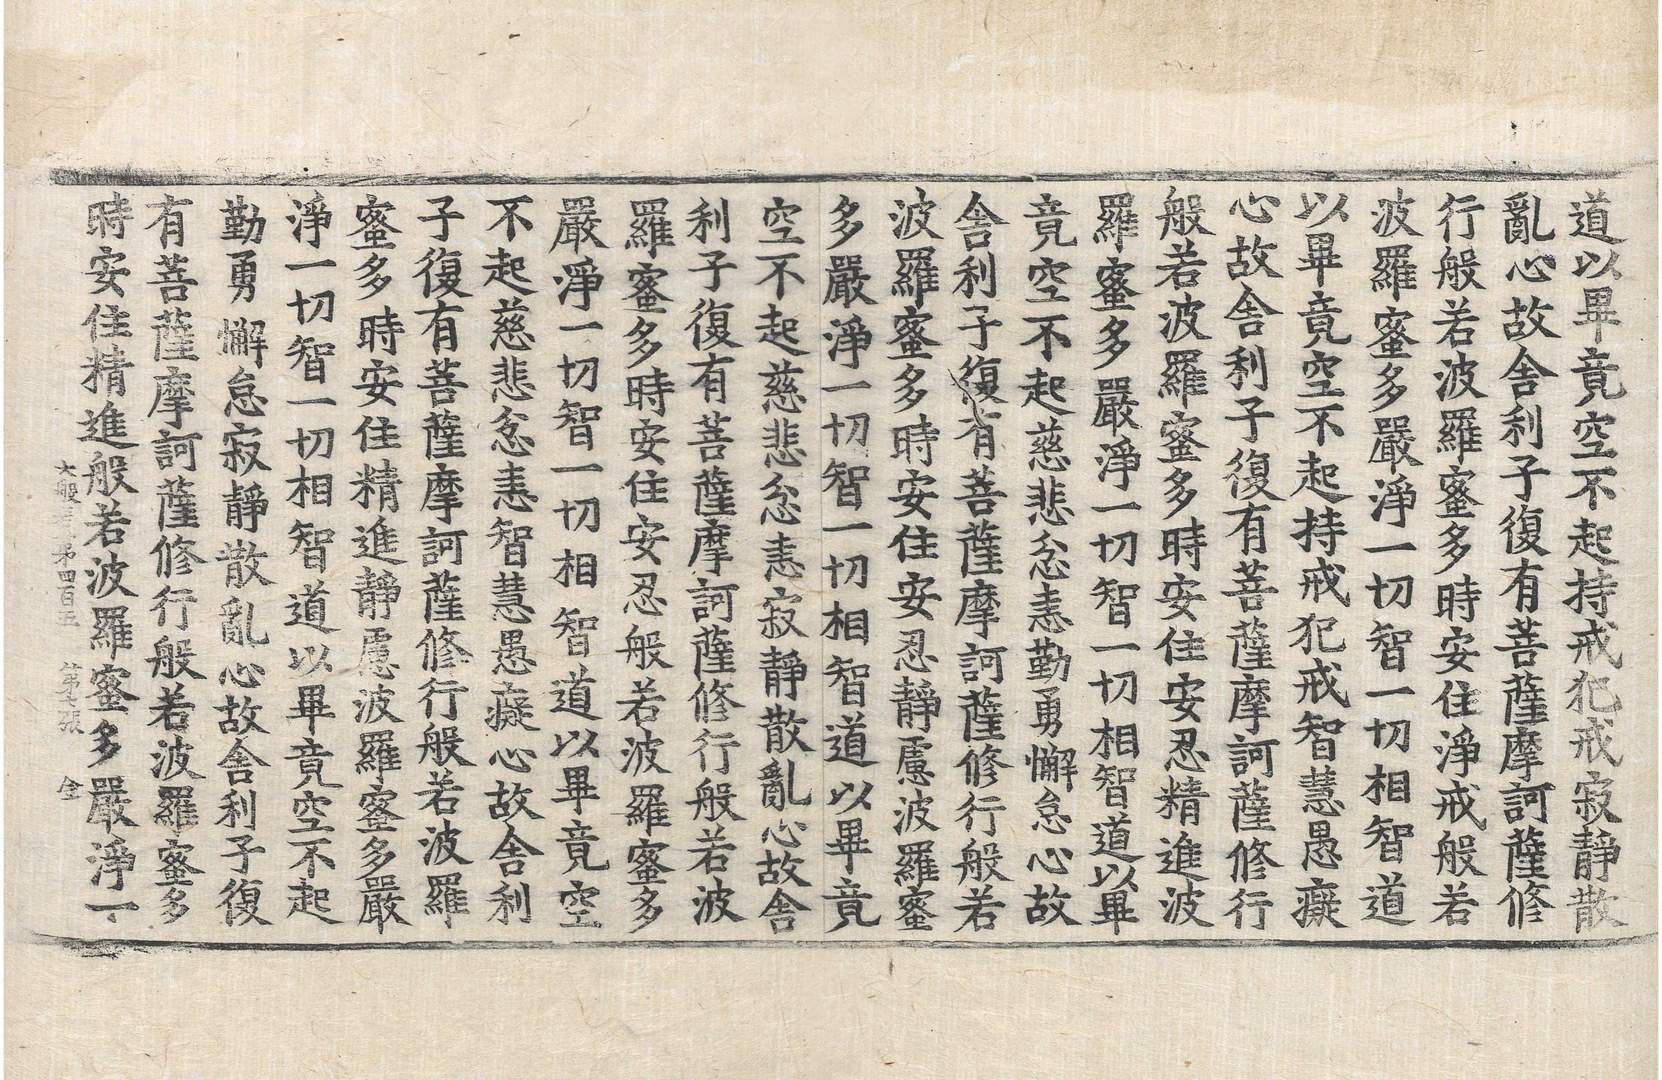 道以畢竟空不起持戒犯戒寂靜散
亂心故舍利子復有菩薩摩訶薩修
行般若波羅蜜多時安住淨戒般若
波羅蜜多嚴淨一切智一切相智道
以畢竟空不起持戒犯戒智慧愚癡
心故舍利子復有菩薩摩訶薩修行
般若波羅蜜多時安住安忍精進波
羅蜜多嚴淨一切智一切相智道以畢
竟空不起慈悲忿恚勤勇懈怠心故
舍利子復有菩薩摩訶薩修行般若
波羅蜜多時安住安忍靜慮波羅蜜
多嚴淨一切智一切相智道以畢竟
空不起慈悲忿恚寂靜散亂心故舍
利子復有菩薩摩訶薩修行般若波
羅蜜多時安住安忍般若波羅蜜多
嚴淨一切智一切相智道以畢竟空
不起慈悲忿恚智慧愚癡心故舍利
子復有菩薩摩訶薩修行般若波羅
蜜多時安住精進靜慮波羅蜜多嚴
淨一切智一切相智道以畢竟空不起
勤勇懈怠寂靜散亂心故舍利子復
有菩薩摩訶薩修行般若波羅蜜多
時安住精進般若波羅蜜多嚴淨一
大般若第四百五 第張